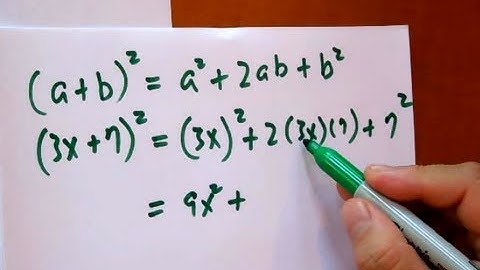 (a+b)² = a² + 2ab + b²
(3x+7)² = (3x)² + 2(3x)(7) + 7²
= 9x² +